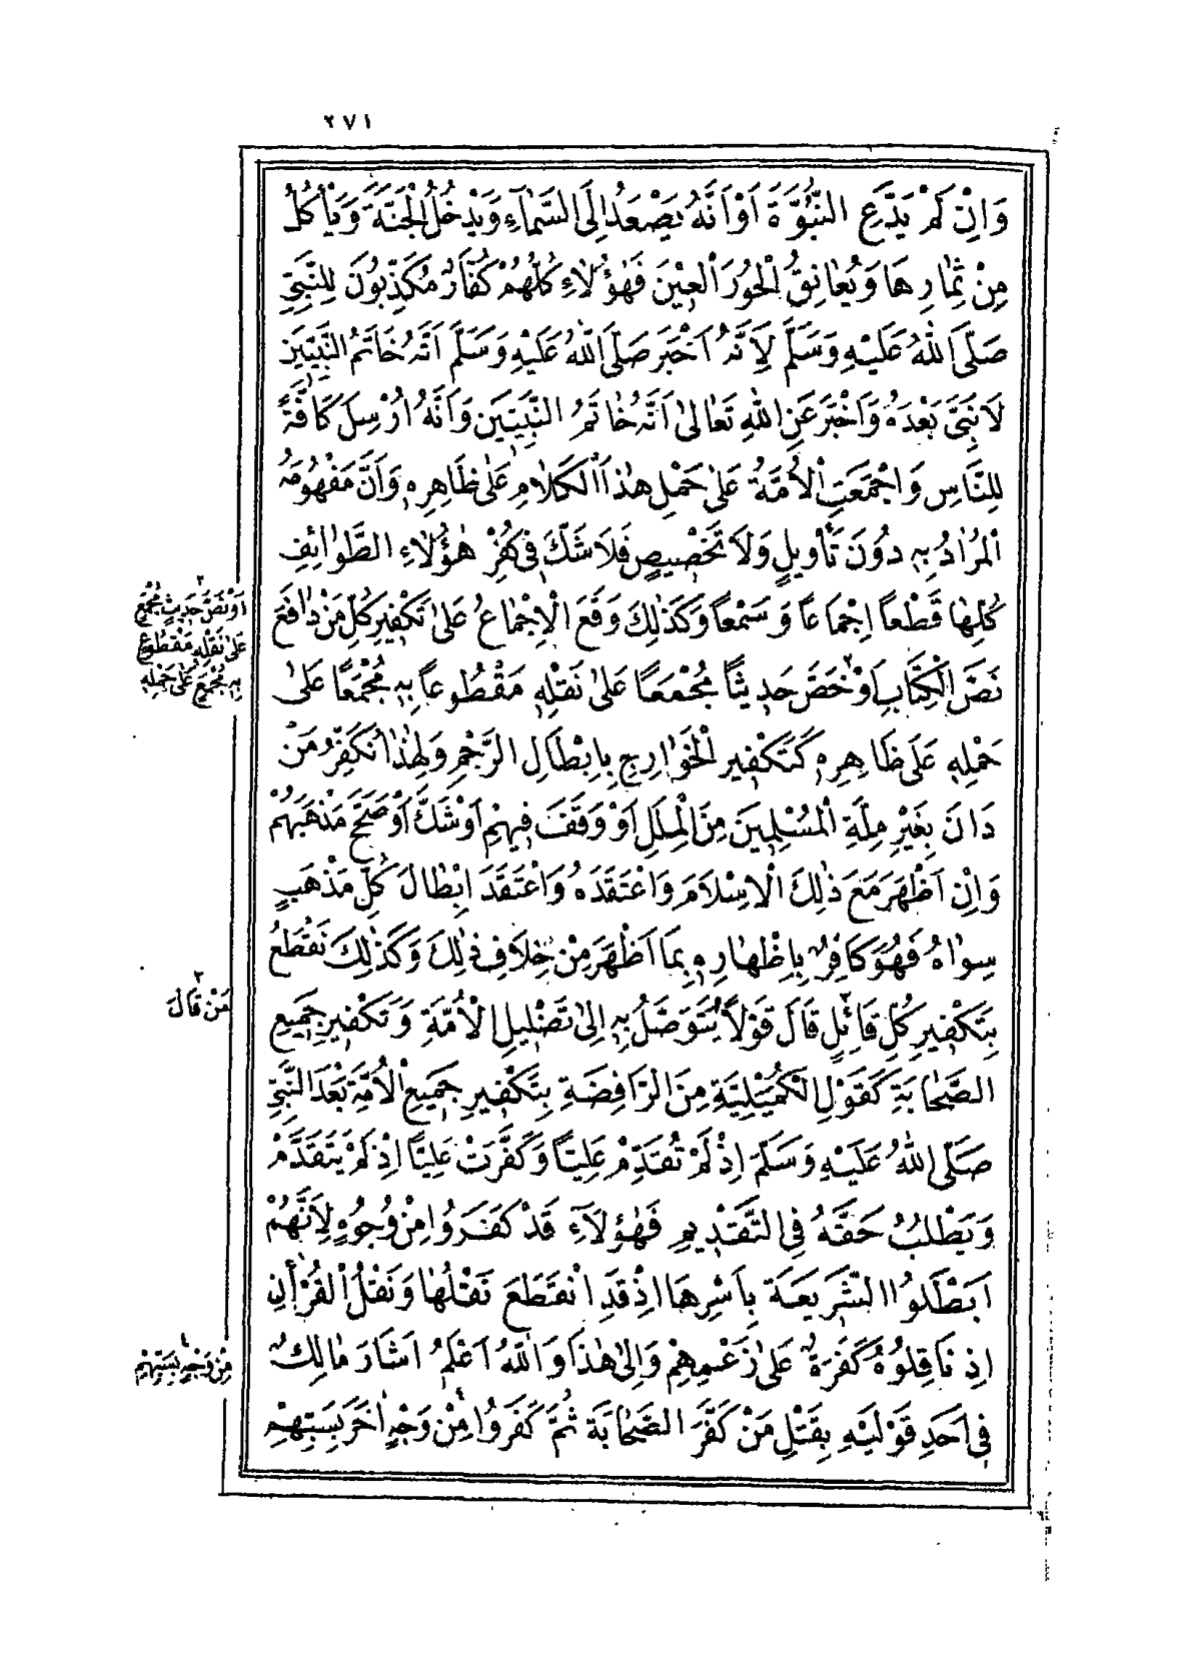 ٢٧١
وَاِنْ لَمْ يَدَّعِ النُّبُوَّةَ اَوْ اَنَّهُ يَصْعَدُ اِلَى السَّمَآءِ وَيَدْخُلُ الْجَنَّةَ وَيَأْكُلُ
مِنْ ثِمَارِهَا وَيُعَانِقُ الْحُورَ الْعِيْنَ فَهٰؤُلَاءِ كُلُّهُمْ كُفَّارٌ مُكَذِّبُونَ لِلنَّبِيِّ
صَلَّى اللّٰهُ عَلَيْهِ وَسَلَّمَ لِاَنَّهُ اَخْبَرَ صَلَّى اللّٰهُ عَلَيْهِ وَسَلَّمَ اَنَّهُ خَاتَمُ النَّبِيّيِنَ
لَا نَبِيَّ بَعْدَهُ وَاَخْبَرَ عَنِ اللّٰهِ تَعَالىٰ اَنَّهُ خَاتَمُ النَّبِيّيِنَ وَاَنَّهُ اُرْسِلَ كَافَّةً
لِلنَّاسِ وَاجْمَعَتِ الْاُمَّةُ عَلىٰ حَمْلِ هٰذَا الْكَلَامِ عَلىٰ ظَاهِرِهِ وَاَنَّ مَفْهُومَهُ
الْمُرَادُ بِهِ دُونَ تَأْوِيلٍ وَلَا تَخْصِيصٍ فَلَا شَكَّ فِى كُفْرِ هٰؤُلَاءِ الطَّوَائِفِ
كُلِّهَا قَطْعاً اِجْمَاعاً وَسَمْعاً وَكَذٰلِكَ وَقَعَ الْاِجْمَاعُ عَلىٰ تَكْفِيرِ كُلِّ مَنْ دَافَعَ
نَصَّ الْكِتَابِ اَوْ٢ خَصَّ حَدِيثاً مُجْمَعًا عَلىٰ نَقْلِهِ مَقْطُوعاً بِهِ مُجْمَعًا عَلىٰ
حَمْلِهِ عَلَى ظَاهِرِهِ كَتَكْفِيرِ الْخَوَارِجِ بِاِبْطَالِ الرَّجْمِ وَلِهٰذَا نُكَفِّرُ مَنْ
دَانَ بِغَيْرِ مِلَّةِ الْمُسْلِمِينَ مِنَ الْمِلَلِ اَوْ وَقَفَ فِيهِمْ اَوْ شَكَّ اَوْ صَحَّحَ مَذْهَبَهُمْ
وَاِنْ اَظْهَرَ مَعَ ذٰلِكَ الْاِسْلَامَ وَاعْتَقَدَهُ وَاعْتَقَدَ اِبْطَالَ كُلِّ مَذْهَبٍ
سِوَاهُ فَهُوَ كَافِرٌ بِاِظْهَارِهِ بِمَا اَظْهَرَ مِنْ خِلَافِ ذٰلِكَ وَكَذٰلِكَ نَقْطَعُ
بِتَكْفِيرِ كُلِّ قَائِلٍ٣ قَالَ قَوْلاً يَتَوَصَّلُ بِهِ اِلىٰ تَضْلِيلِ الْاُمَّةِ وَتَكْفِيرِ جَمِيعِ
الصَّحَابَةِ كَقَوْلِ الْكُمَيْلِيَّةِ مِنَ الرَّافِضَةِ بِتَكْفِيرِ جَمِيعِ الْاُمَّةِ بَعْدَ النَّبِيِّ
صَلَّى اللّٰهُ عَلَيْهِ وَسَلَّمَ اِذْ لَمْ تُقَدِّمْ عَلِيًّا وَكَفَّرَتْ عَلِيًّا اِذْ لَمْ يَتَقَدَّمْ
وَيَطْلُبُ حَقَّهُ فِى التَّقْدِيمِ فَهٰؤُلَآءِ قَدْ كَفَرُوا مِنْ وُجُوهٍ لِاَنَّهُمْ
اَبْطَلُوا الشَّرِيعَةَ بِاَسْرِهَا اِذْ قَدِ انْقَطَعَ نَقْلُهَا وَنَقْلُ الْقُرْاٰنِ
اِذْ نَاقِلُوهُ كَفَرَةٌ عَلىٰ زَعْمِهِمْ وَاِلىٰ هٰذَا وَاللّٰهُ اَعْلَمُ اَشَارَ مَالِكٌ
فِى اَحَدِ قَوْلَيْهِ بِقَتْلِ مَنْ كَفَّرَ الصَّحَابَةَ ثُمَّ كَفَرُوا٤ مِنْ وَجْهٍ اٰخَرَ بِسَبِّهِمْ
٢
اَوْ نَصَّ حَدِيثٍ مُجْمَعٍ
عَلىٰ نَقْلِهِ مَقْطُوعٍ
بِهِ مُجْمَعٍ عَلىٰ حَمْلِهِ
٣
مَنْ قَالَ
٤
مِنْ وَجْهِ بِسَبِّهِمْ